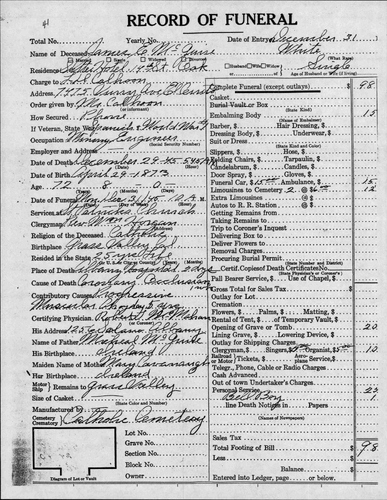 41
RECORD OF FUNERAL
Total No. Date of Entry December 31
Name of Deceased James C. McGuire White
Married Widowed Divorced Single
Residence Hotel 14 Oak Husband Wife Widow Age of Husband or Wife (if living)
Charge to Calhoun
Address 7715 Sunnyside El Cerrito
Order given by Mrs Calhoun
How Secured Phone
If Veteran, State War Spanish & World War 1
Occupation Mining Engineer
Employer and Address (Social Security Number)
Date of Death December 29-45 5 40 A
Date of Birth April 29-1873
Age 72 8 0
Date of Funeral Mon Dec 31/45 10 A.M.
Services at St Patricks Church
Clergyman Rev Horgan
Religion of the Deceased Catholic
Birthplace Grass Valley Cal
Resided in the State 25 years
Place of Death Albany Hospital 2 days
Cause of Death Coronary Occlusion
Contributory Causes
Certifying Physician Robert
His Address
Name of Father Michael McGuire
His Birthplace Ireland
Maiden Name of Mother Mary Cavanaugh
Her Birthplace Ireland
Motor Ship Remains to Grass Valley
Size of Casket (State Color and Number)
Manufactured by
Cemetery Catholic Cemetery
Lot No.
Grave No.
Section No.
Block No.
Owner
Diagram of Lot or Vault
Complete Funeral (except outlays) $ 98
Burial Vault or Box (State Kind)
Embalming Body 15
(Name of Embalmer)
Barber, $ Hair Dressing, $
Dressing Body, $ Underwear, $
Suit or Dress (State Kind)
Slippers, $ Hose, $
Folding Chairs, $ Tarpaulin, $
Candelabrum, $ Candles, $
Door Spray, $ Gloves, $
Funeral Car, $ 15 Ambulance, $ 15
Limousines to Cemetery 2 @ $ 6.00 12
Extra Limousines @ $
Autos to R. R. Station @ $
Getting Remains from
Taking Remains to
Trip to Coroner's Inquest
Delivering Box to
Deliver Flowers to
Removal Charges
Procuring Burial Permit (State Number and District)
Certif. Copies of Death Certificates No. (State Physician's or Coroner's)
Pall Bearer Service, $ Use of Chapel, $
Gross Total for Sales Tax
Outlay for Lot
Cremation
Flowers, $ Palms, $ Matting, $
Rental of Tent, $ of Temporary Vault, $
Opening of Grave or Tomb 20
Lining Grave, $ Lowering Device, $
Outlay for Shipping Charges
Clergyman, $ Singers, $ Organist, $ 5 10
Railroad or Motor Tickets, $ Aero-plane, $
Telegr., Phone, Cable or Radio Charges
Cash Advanced
Out of town Undertaker's Charges
Personal Service 22
Bell Boy 1
line Death Notices in Papers
(Names of Newspapers)
Sales Tax
Total Footing of Bill $ 98
Less
Balance
Entered into Ledger, page or below.